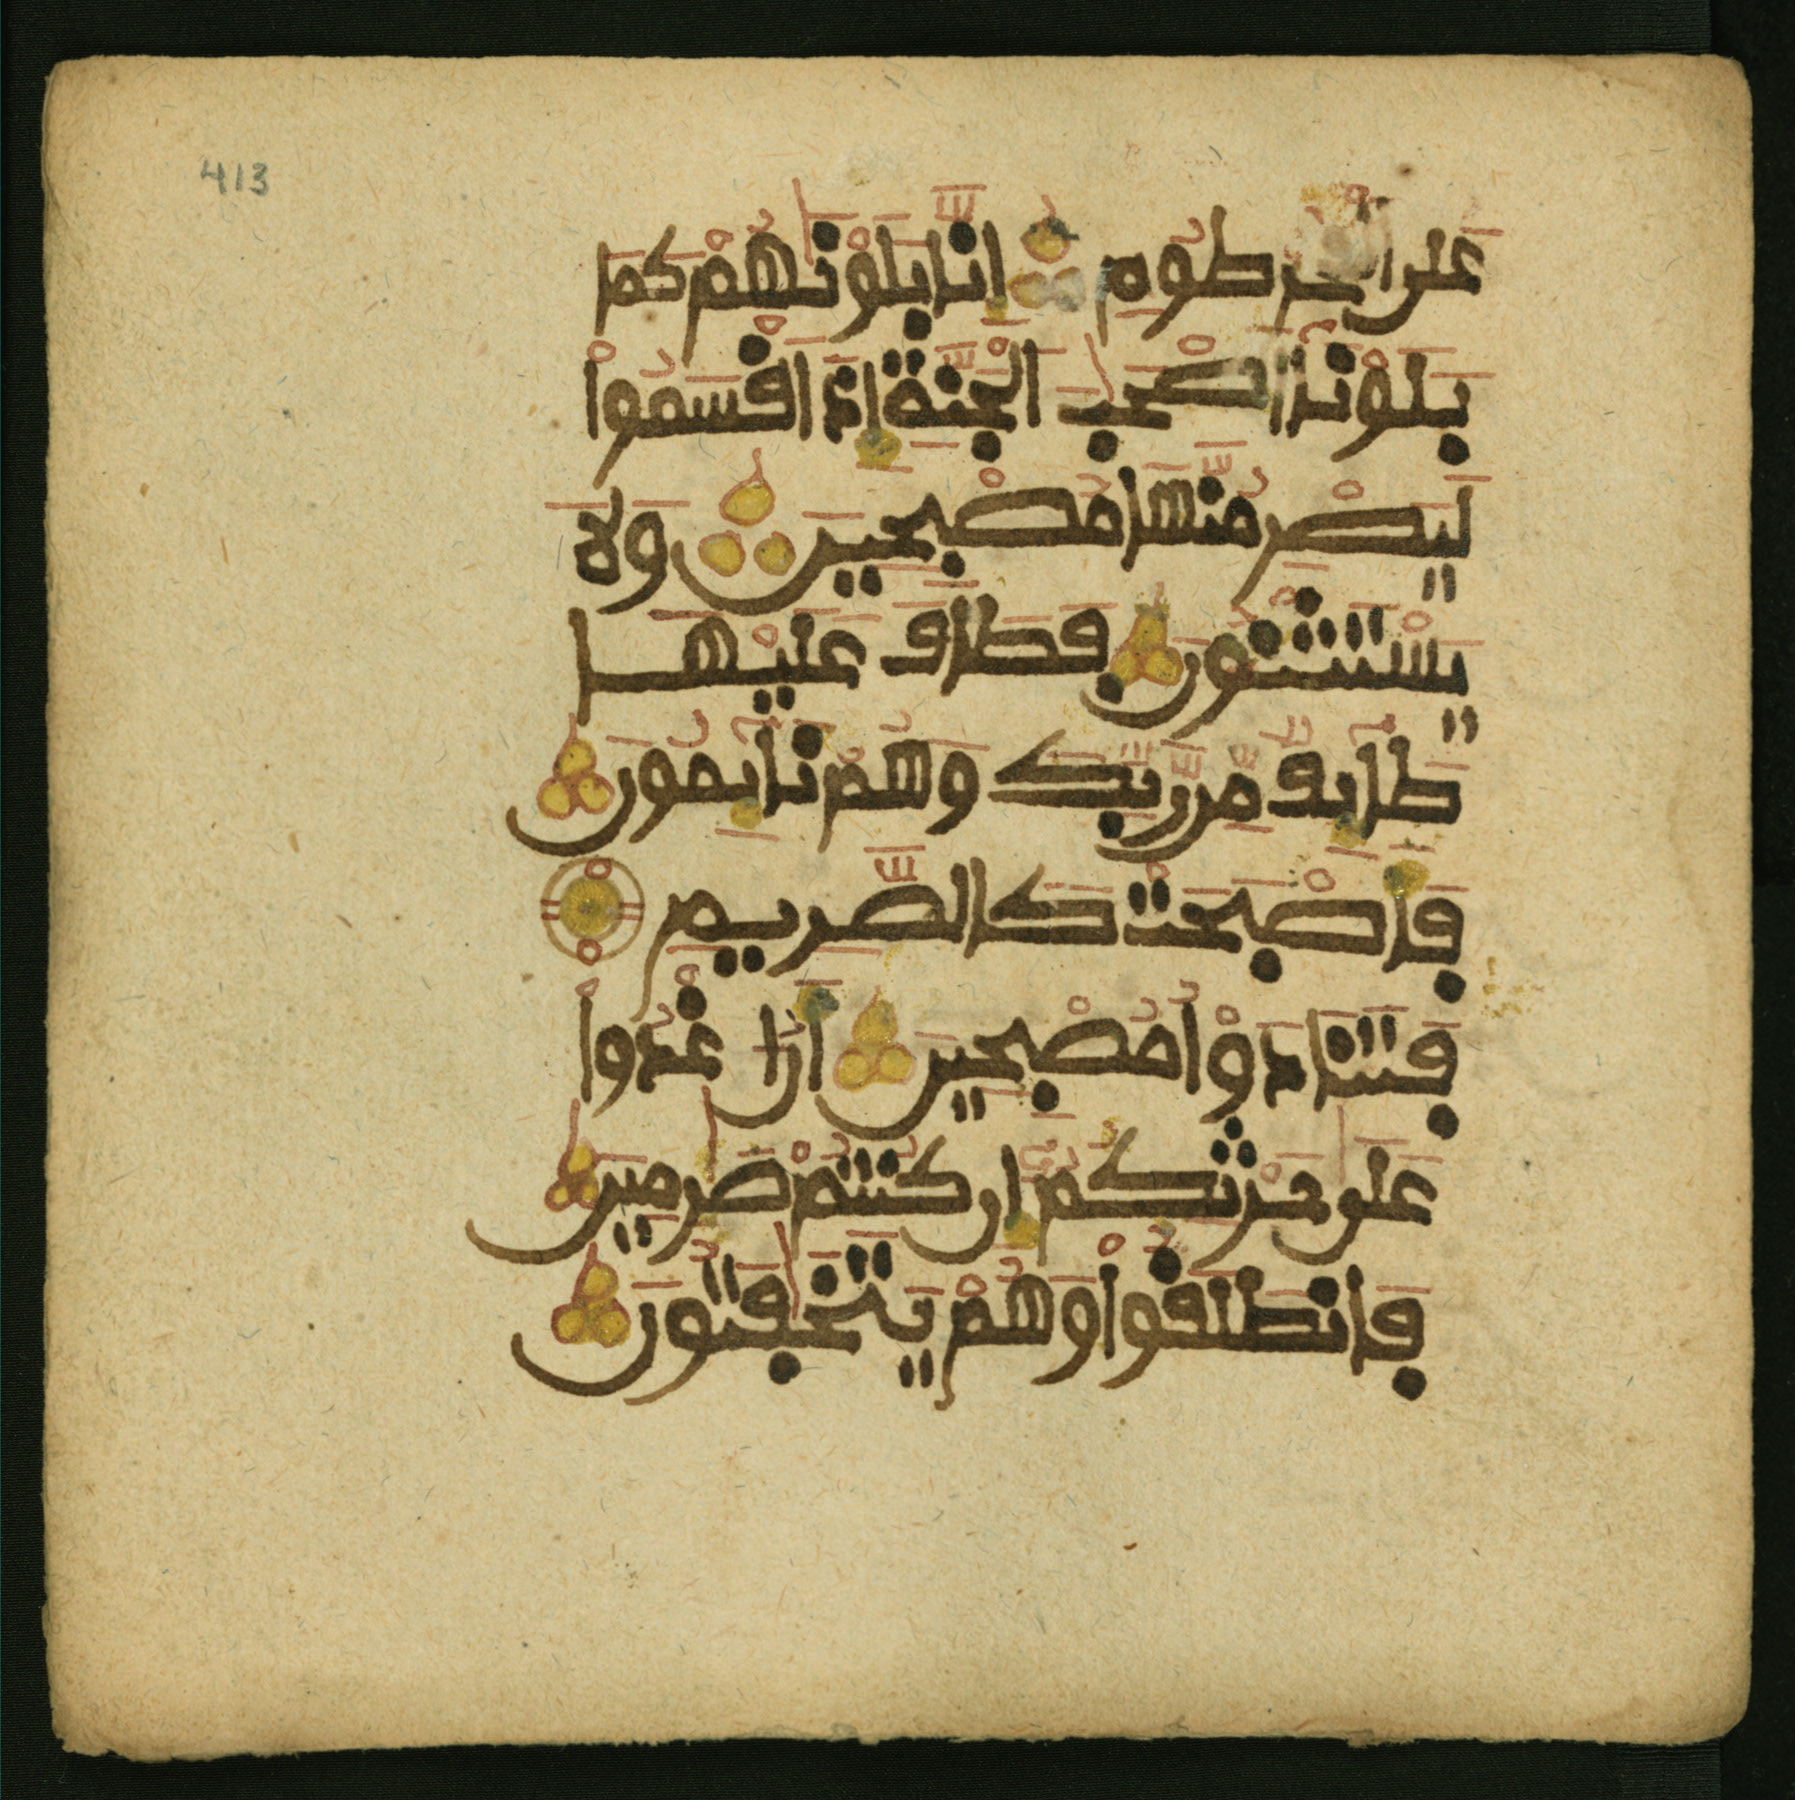 413
على الخرطوم انا بلونهم كما
بلونا اصحب الجنة اذ اقسموا
ليصرمنها مصبحين ولا
يستثنون فطاف عليها
طايف من ربك وهم نايمون
فاصبحت كالصريم
فتنادوا مصبحين ان اغدوا
على حرثكم ان كنتم صرمين
فانطلقوا وهم يتخفتون